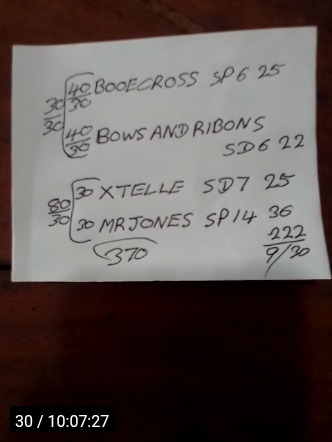 40/30 BOOECROSS SP6 25
30/30
40/30 BOWSANDRIBONS
SD6 22
30 XTELLE SD7 25
80/30
30 MRJONES SP14 36
370
222
9/30
30 / 10:07:27